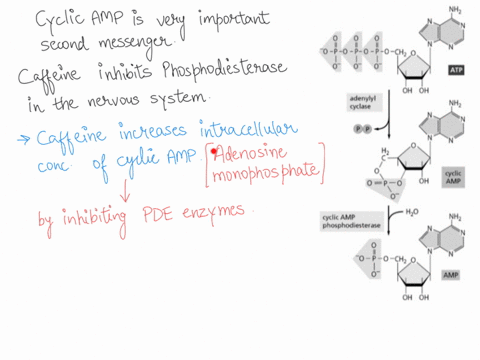 Cyclic AMP is very important
second messenger.
Caffeine inhibits Phosphodiesterase
in the nervous system.
→ Caffeine increases intracellular
conc. of cyclic AMP. [Adenosine
monophosphate]
↓
by inhibiting PDE enzymes.
NH₂
⁻O-P-O-P-O-P-O-CH₂
O O O
O⁻ O⁻ O⁻
O
OH OH
ATP
adenylyl
cyclase
P P
NH₂
H₂
C
O
O
O=P-O
O⁻
OH
cyclic
AMP
cyclic AMP
phosphodiesterase
H₂O
NH₂
O
⁻O-P-O-CH₂
O⁻
O
OH OH
AMP